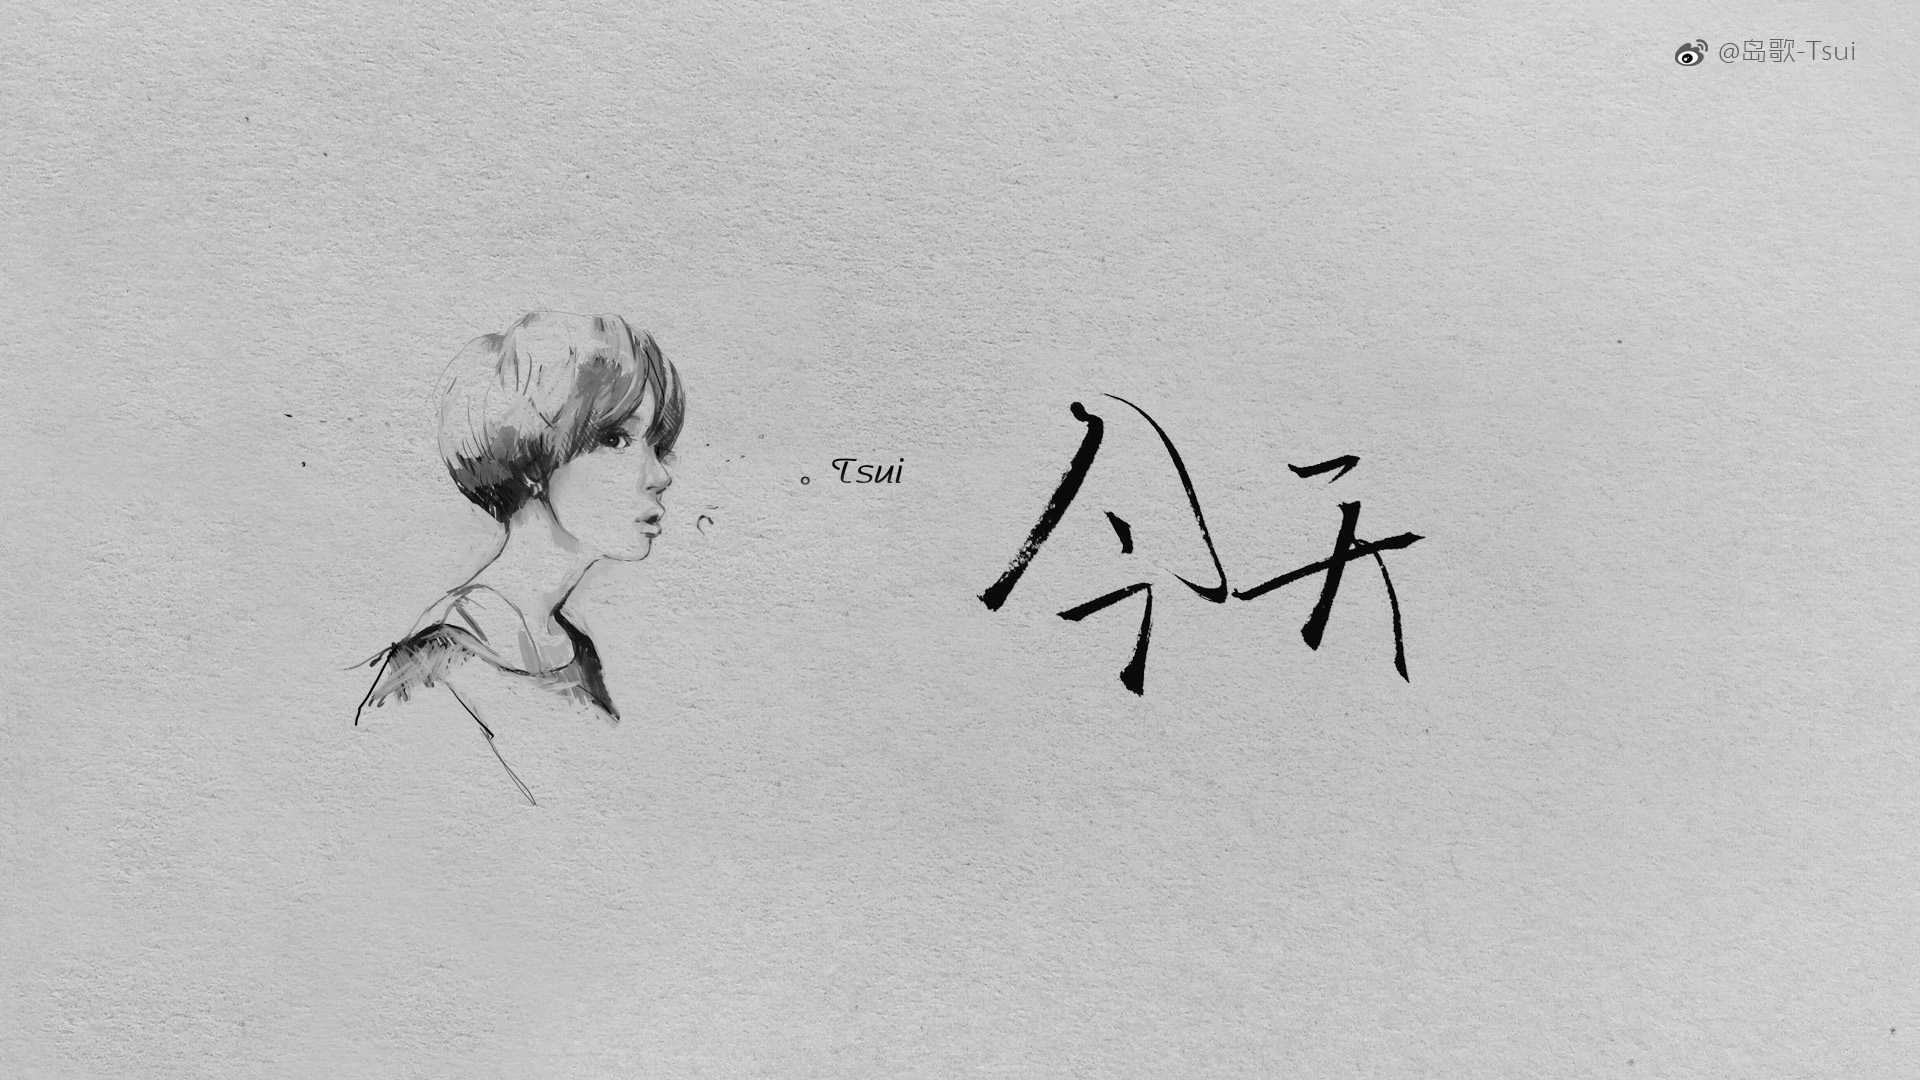 @岛歌-Tsui
。Tsui
今天